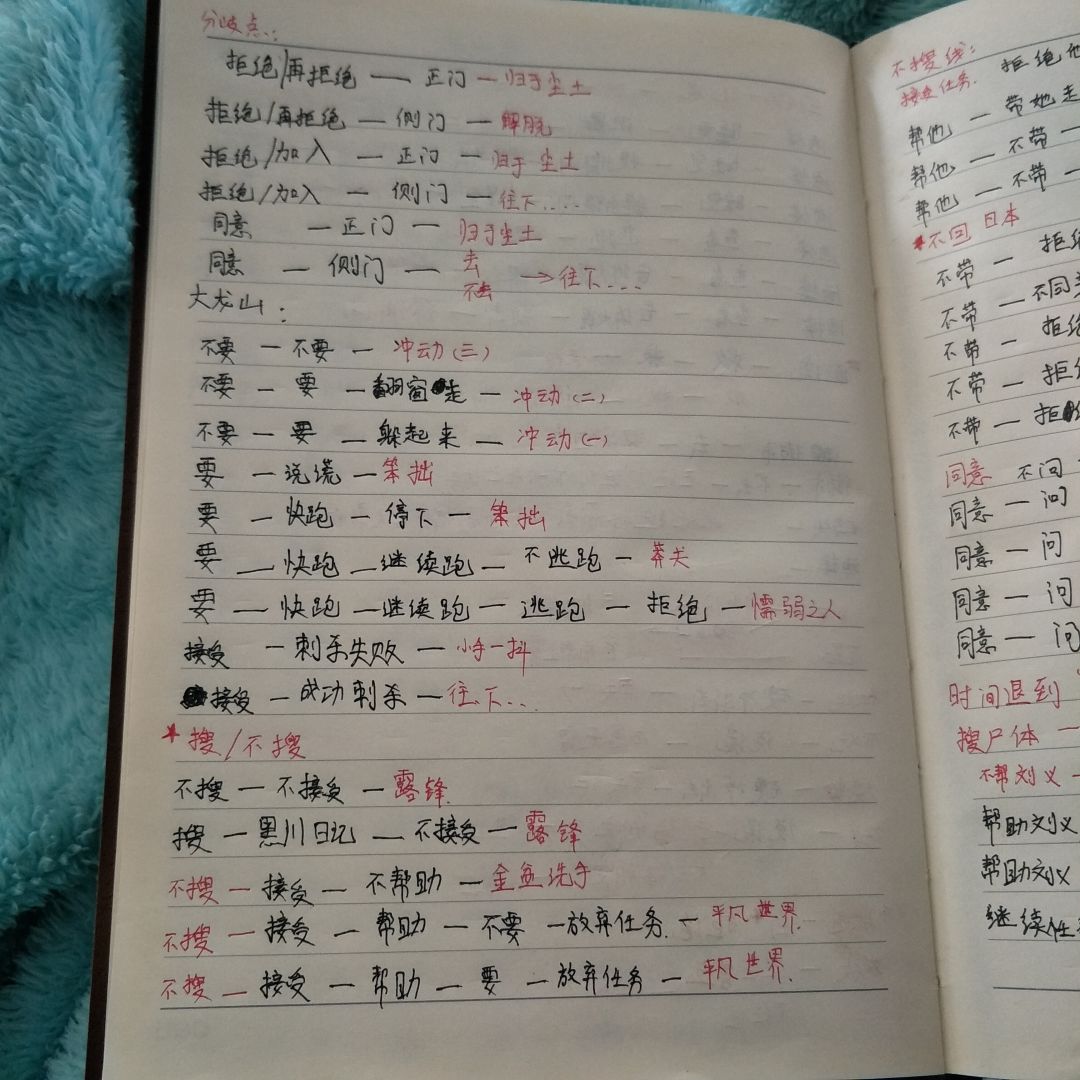 分岐点：
拒绝/再拒绝 — 正门 — 归于尘土
拒绝/再拒绝 — 侧门 — 解脱
拒绝/加入 — 正门 — 归于尘土
拒绝/加入 — 侧门 — 往下....
同意 — 正门 — 归于尘土
同意 — 侧门 — 去
不去 → 往下...
大龙山：
不要 — 不要 — 冲动(三)
不要 — 要 — 翻窗走 — 冲动(二)
不要 — 要 — 躲起来 — 冲动(一)
要 — 说谎 — 笨拙
要 — 快跑 — 停下 — 笨拙
要 — 快跑 — 继续跑 — 不逃跑 — 莽夫
要 — 快跑 — 继续跑 — 逃跑 — 拒绝 — 懦弱之人
接受 — 刺杀失败 — 小手一抖
接受 — 成功刺杀 — 往下...
*搜/不搜
不搜 — 不接受 — 露锋
搜 — 黑川日记 — 不接受 — 露锋
不搜 — 接受 — 不帮助 — 金盆洗手
不搜 — 接受 — 帮助 — 不要 — 放弃任务 — 平凡世界.
不搜 — 接受 — 帮助 — 要 — 放弃任务 — 平凡世界.
不搜线： 拒绝他
接受任务.
帮他 — 带她走
帮他 — 不带 —
帮他 — 不带 —
*不回日本
不带 — 拒绝
不带 — 不同意
不带 — 拒绝
不带 — 拒绝
不带 — 拒
同意 不问
同意 — 问
同意 — 问
同意 — 问
同意 — 问
时间退到
搜尸体 —
不帮刘义 —
帮助刘义
帮助刘义
继续任